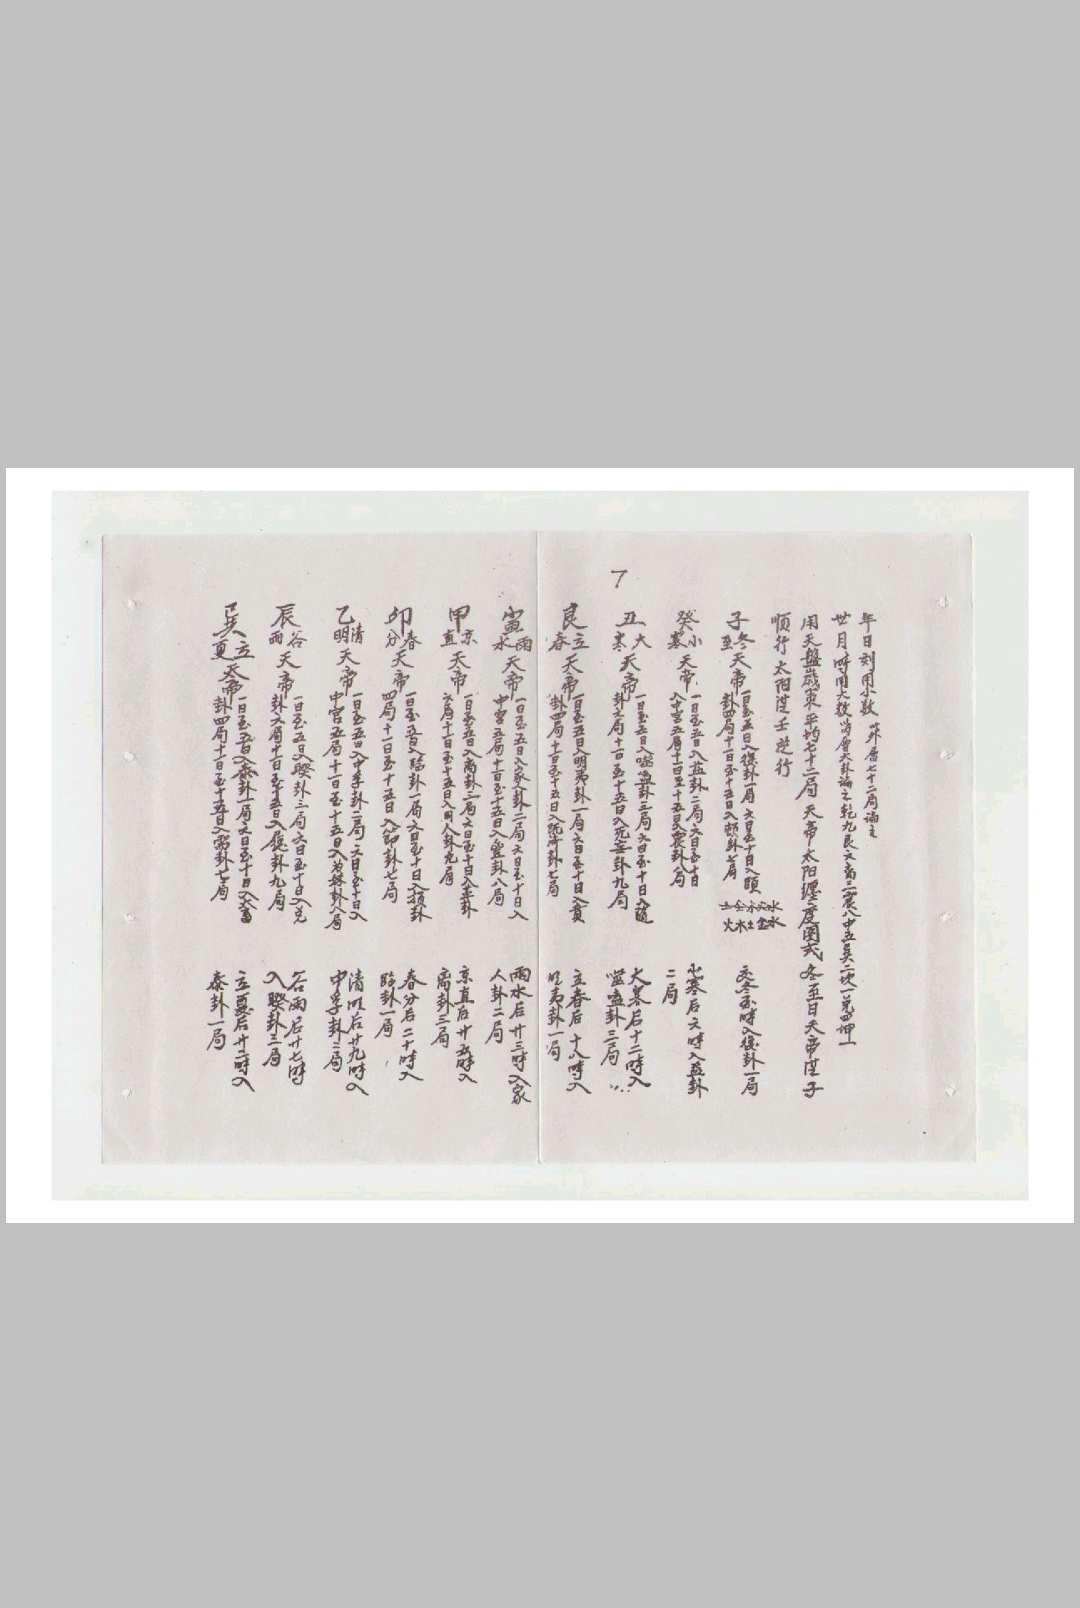 年日刻用小数 以外层七十二局论之
世月時用大数 皆層大卦論之乾九艮六离三震八中五巽二坎一兑四坤一
用天盤歲東平均七十二局 天帝太阳躔度图式 冬至日天帝湟子
順行太阳湟壬逆行
子 冬至 天帝 一日至五日入復卦一局 六日至十日入頤
卦四局十一日至十五日入頤卦七局
水火水金土
水金土木火
交冬至時入復卦一局
癸 小寒 天帝 一日至五日入益卦二局六日至十日
入中宫五局十一日至十五日入震卦八局
小寒后六時入益卦
二局
丑 大寒 天帝 一日至五日入噬嗑卦三局六日至十日入隨
卦六局十一日至十五日入无妄卦九局
大寒后十二時入
噬嗑卦三局
艮 立春 天帝 一日至五日入明夷卦一局六日至十日入賁
卦四局十一日至十五日入既济卦七局
立春后十八時入
明夷卦一局
寅 雨水 天帝 一日至五日入家人卦二局六日至十日入
中宫五局十一日至十五日入豐卦八局
雨水后廿三時入家
人卦二局
甲 京直 天帝 一日至五日入离卦三局六日至十日入革卦
六局十一日至十五日入同人卦九局
京直后廿五時入
离卦三局
卯 春分 天帝 一日至五日入臨卦一局六日至十日入損卦
四局十一日至十五日入節卦七局
春分后二十時入
臨卦一局
乙 清明 天帝 一日至五日入中孚卦二局六日至十日入
中宫五局十一日至十五日入归妹卦八局
清明后廿九時入
中孚卦二局
辰 谷雨 天帝 一日至五日入睽卦三局六日至十日入兑
卦六局十一日至十五日入履卦九局
谷雨后廿七時
入睽卦三局
巽 立夏 天帝 一日至五日入泰卦一局六日至十日入大畜
卦四局十一日至十五日入需卦七局
立夏后廿二時入
泰卦一局
7